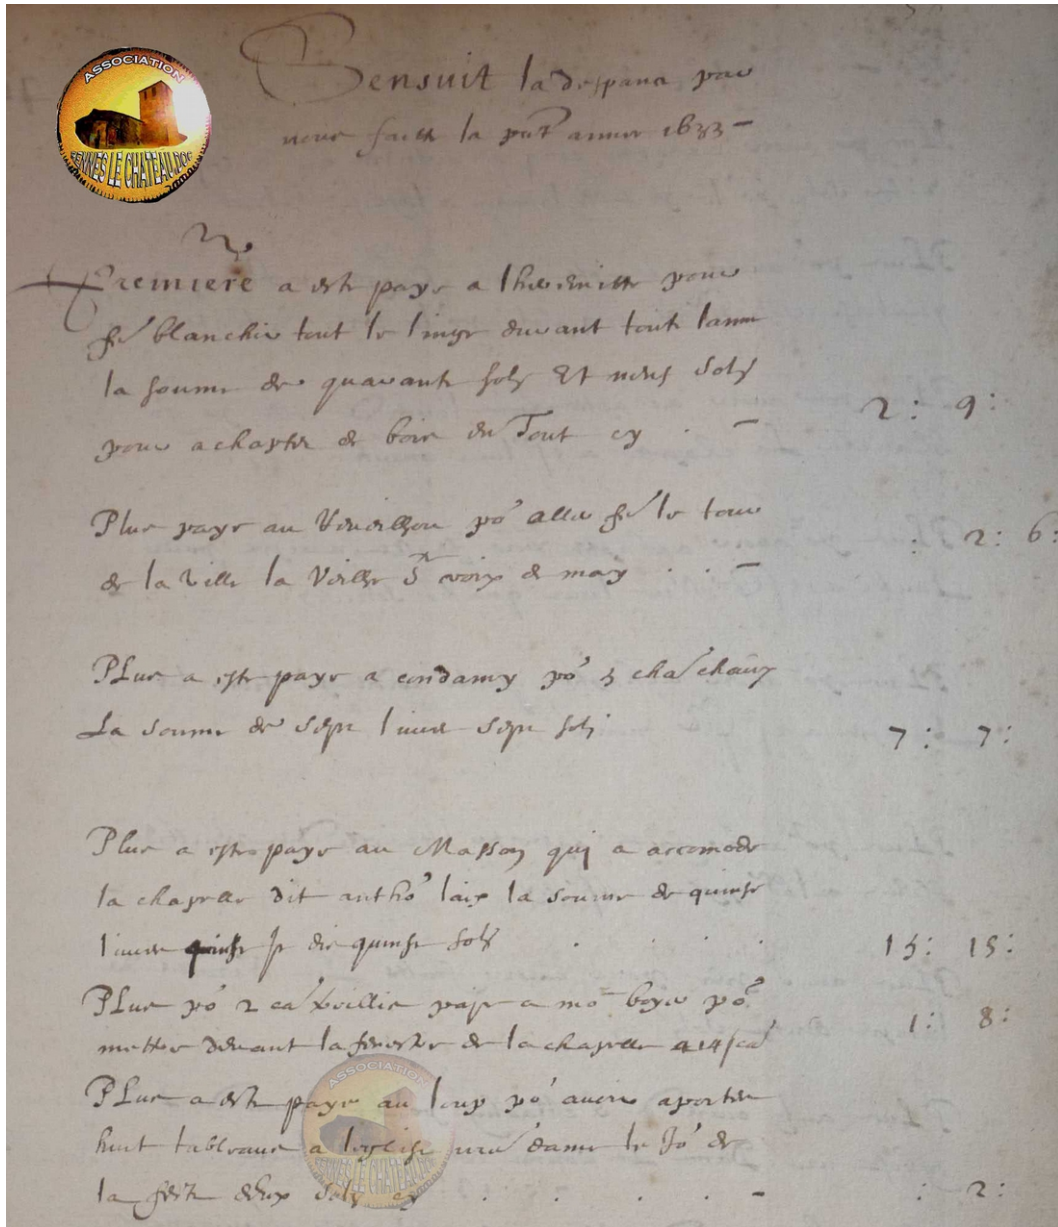 ASSOCIATION
RENNES LE CHATEAU.DOC
Sensuit la despance par
nous faicte la pnt annee 1633 -
Premiere a este paye a lhermitte pour
fe blanchir tout le linge durant toute lannee
la somme de quarante sols Et neuf sols
pour achapter de bois en Tout cy . - 2: 9:
Plus paye au po aller fe le tour
de la ville la Veille croix de may . . - : 2: 6:
PLus a este paye a condamy po
La somme de sept livres sept sols 7: 7:
Plus a este paye au Masson qui a accomode
la chapelle dit la somme de quinse
livres quinse je dis quinse sols . . . . 15: 15:
PLus po 2 paye a mo boyer po
mettre devant la fenestre de la chapelle a 14 1: 8:
PLus a este paye au loup po avoir aporter
huit tableaux a leglise dame le Jo de
la feste deux sols cy . . . . - : 2:
ASSOCIATION
RENNES LE CHATEAU.DOC